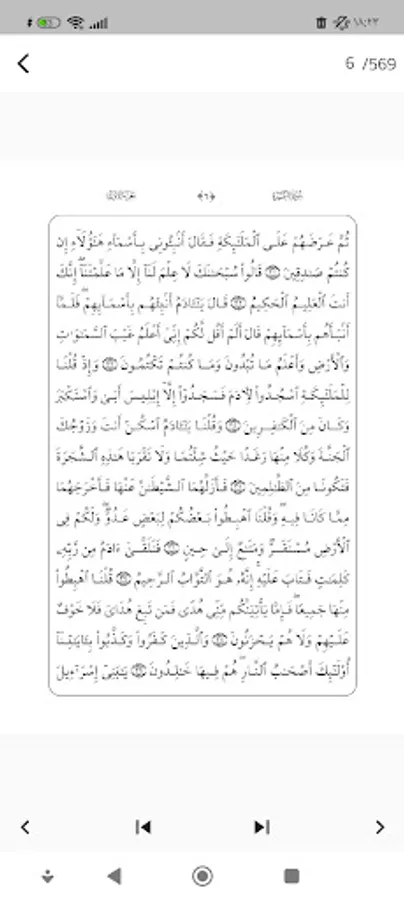 ١٨:٢٢
6 /569
﴿٦﴾
ثُمَّ عَرَضَهُمْ عَلَى ٱلْمَلَٰٓئِكَةِ فَقَالَ أَنۢبِـُٔونِى بِأَسْمَآءِ هَٰٓؤُلَآءِ إِن
كُنتُمْ صَٰدِقِينَ قَالُوا۟ سُبْحَٰنَكَ لَا عِلْمَ لَنَآ إِلَّا مَا عَلَّمْتَنَآ إِنَّكَ
أَنتَ ٱلْعَلِيمُ ٱلْحَكِيمُ قَالَ يَٰٓـَٔادَمُ أَنۢبِئْهُم بِأَسْمَآئِهِمْ فَلَمَّآ
أَنۢبَأَهُم بِأَسْمَآئِهِمْ قَالَ أَلَمْ أَقُل لَّكُمْ إِنِّىٓ أَعْلَمُ غَيْبَ ٱلسَّمَٰوَٰتِ
وَٱلْأَرْضِ وَأَعْلَمُ مَا تُبْدُونَ وَمَا كُنتُمْ تَكْتُمُونَ وَإِذْ قُلْنَا
لِلْمَلَٰٓئِكَةِ ٱسْجُدُوا۟ لِءَادَمَ فَسَجَدُوٓا۟ إِلَّآ إِبْلِيسَ أَبَىٰ وَٱسْتَكْبَرَ
وَكَانَ مِنَ ٱلْكَٰفِرِينَ وَقُلْنَا يَٰٓـَٔادَمُ ٱسْكُنْ أَنتَ وَزَوْجُكَ
ٱلْجَنَّةَ وَكُلَا مِنْهَا رَغَدًا حَيْثُ شِئْتُمَا وَلَا تَقْرَبَا هَٰذِهِ ٱلشَّجَرَةَ
فَتَكُونَا مِنَ ٱلظَّٰلِمِينَ فَأَزَلَّهُمَا ٱلشَّيْطَٰنُ عَنْهَا فَأَخْرَجَهُمَا
مِمَّا كَانَا فِيهِ وَقُلْنَا ٱهْبِطُوا۟ بَعْضُكُمْ لِبَعْضٍ عَدُوٌّ وَلَكُمْ فِى
ٱلْأَرْضِ مُسْتَقَرٌّ وَمَتَٰعٌ إِلَىٰ حِينٍ فَتَلَقَّىٰٓ ءَادَمُ مِن رَّبِّهِۦ
كَلِمَٰتٍ فَتَابَ عَلَيْهِ إِنَّهُۥ هُوَ ٱلتَّوَّابُ ٱلرَّحِيمُ قُلْنَا ٱهْبِطُوا۟
مِنْهَا جَمِيعًا فَإِمَّا يَأْتِيَنَّكُم مِّنِّى هُدًى فَمَن تَبِعَ هُدَاىَ فَلَا خَوْفٌ
عَلَيْهِمْ وَلَا هُمْ يَحْزَنُونَ وَٱلَّذِينَ كَفَرُوا۟ وَكَذَّبُوا۟ بِـَٔايَٰتِنَآ
أُو۟لَٰٓئِكَ أَصْحَٰبُ ٱلنَّارِ هُمْ فِيهَا خَٰلِدُونَ يَٰبَنِىٓ إِسْرَٰٓءِيلَ